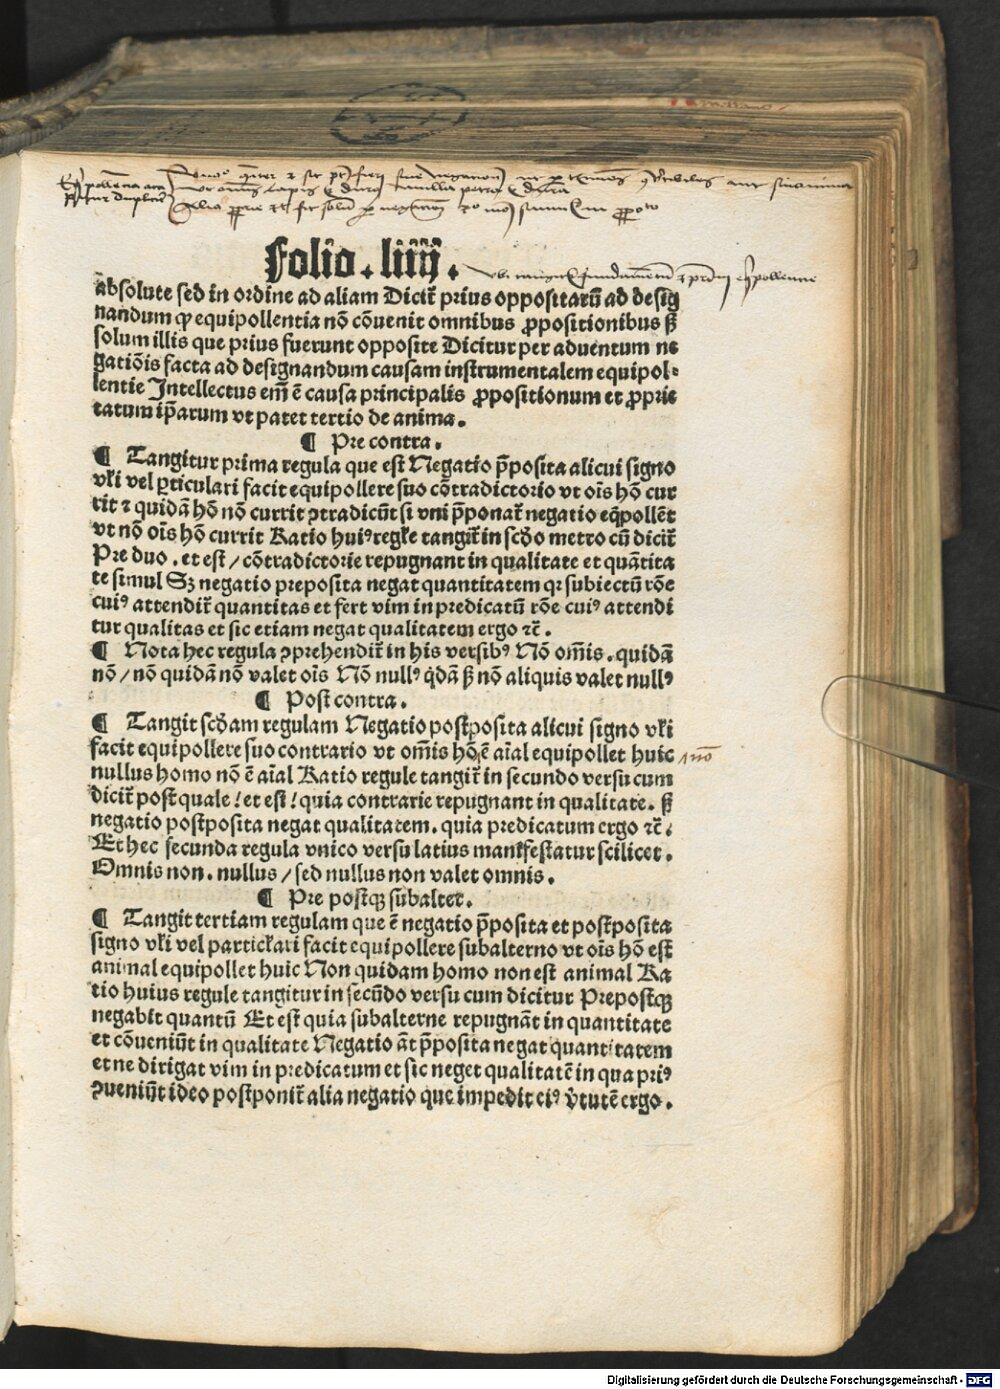 Folio. liiij.
absolute sed in ordine ad aliam Dicit᷑ prius oppositarū ad desig
nandum ꝙ equipollentia nō cōuenit omnibus ꝓpositionibus ß
solum illis que prius fuerunt opposite Dicitur per aduentum ne
gatiōis facta ad designandum causam instrumentalem equipol⸗
lentie Intellectus em̄ ē causa principalis ꝓpositionum et ꝓprie
tatum ip̄arum vt patet tertio de anima.
¶ Pre contra.
¶ Tangitur prima regula que est Negatio p̄posita alicui signo
vƚi vel ꝑticulari facit equipollere suo cōtradictorio vt oīs hō cur
rit ⁊ quidā hō nō currit ꝯtradicūt si vni p̄ponat᷑ negatio eq̄pollēt
vt nō oīs hō currit Ratio huiꝰ regƚe tangit᷑ in scḋo metro cū dicit᷑
Pre duo. et est / cōtradictorie repugnant in qualitate et quātita
te simul Sꝫ negatio preposita negat quantitatem qꝛ subiectū rōe
cuiꝰ attendit᷑ quantitas et fert vim in predicatū rōe cuiꝰ attendi
tur qualitas et sic etiam negat qualitatem ergo ⁊c̄.
¶ Nota hec regula ꝯprehendit᷑ in his versibꝰ Nō om̄is. quidā
nō / nō quidā nō valet oīs Nō nullꝰ q̇dā ß nō aliquis valet nullꝰ
¶ Post contra.
¶ Tangit scḋam regulam Negatio postposita alicui signo vƚi
facit equipollere suo contrario vt om̄is hō ē aīal equipollet huic
nō
nullus homo nō ē aīal Ratio regule tangit᷑ in secundo versu cum
dicit᷑ post quale / et est / quia contrarie repugnant in qualitate. ß
negatio postposita negat qualitatem. quia predicatum ergo ⁊c̄.
Et hec secunda regula vnico versu latius manifestatur scilicet.
Omnis non. nullus / sed nullus non valet omnis.
¶ Pre postqꝫ subalter.
¶ Tangit tertiam regulam que ē negatio p̄posita et postposita
signo vƚi vel particƚari facit equipollere subalterno vt oīs hō est
animal equipollet huic Non quidam homo non est animal Ra
tio huius regule tangitur in secūdo versu cum dicitur Prepostqꝫ
negabit quantū Et est quia subalterne repugnāt in quantitate
et cōueniūt in qualitate Negatio āt p̄posita negat quantitatem
et ne dirigat vim in predicatum et sic neget qualitatē in qua priꝰ
ꝯueniūt ideo postponit᷑ alia negatio que impedit eiꝰ v̇tutē ergo.
Digitalisierung gefördert durch die Deutsche Forschungsgemeinschaft - DFG